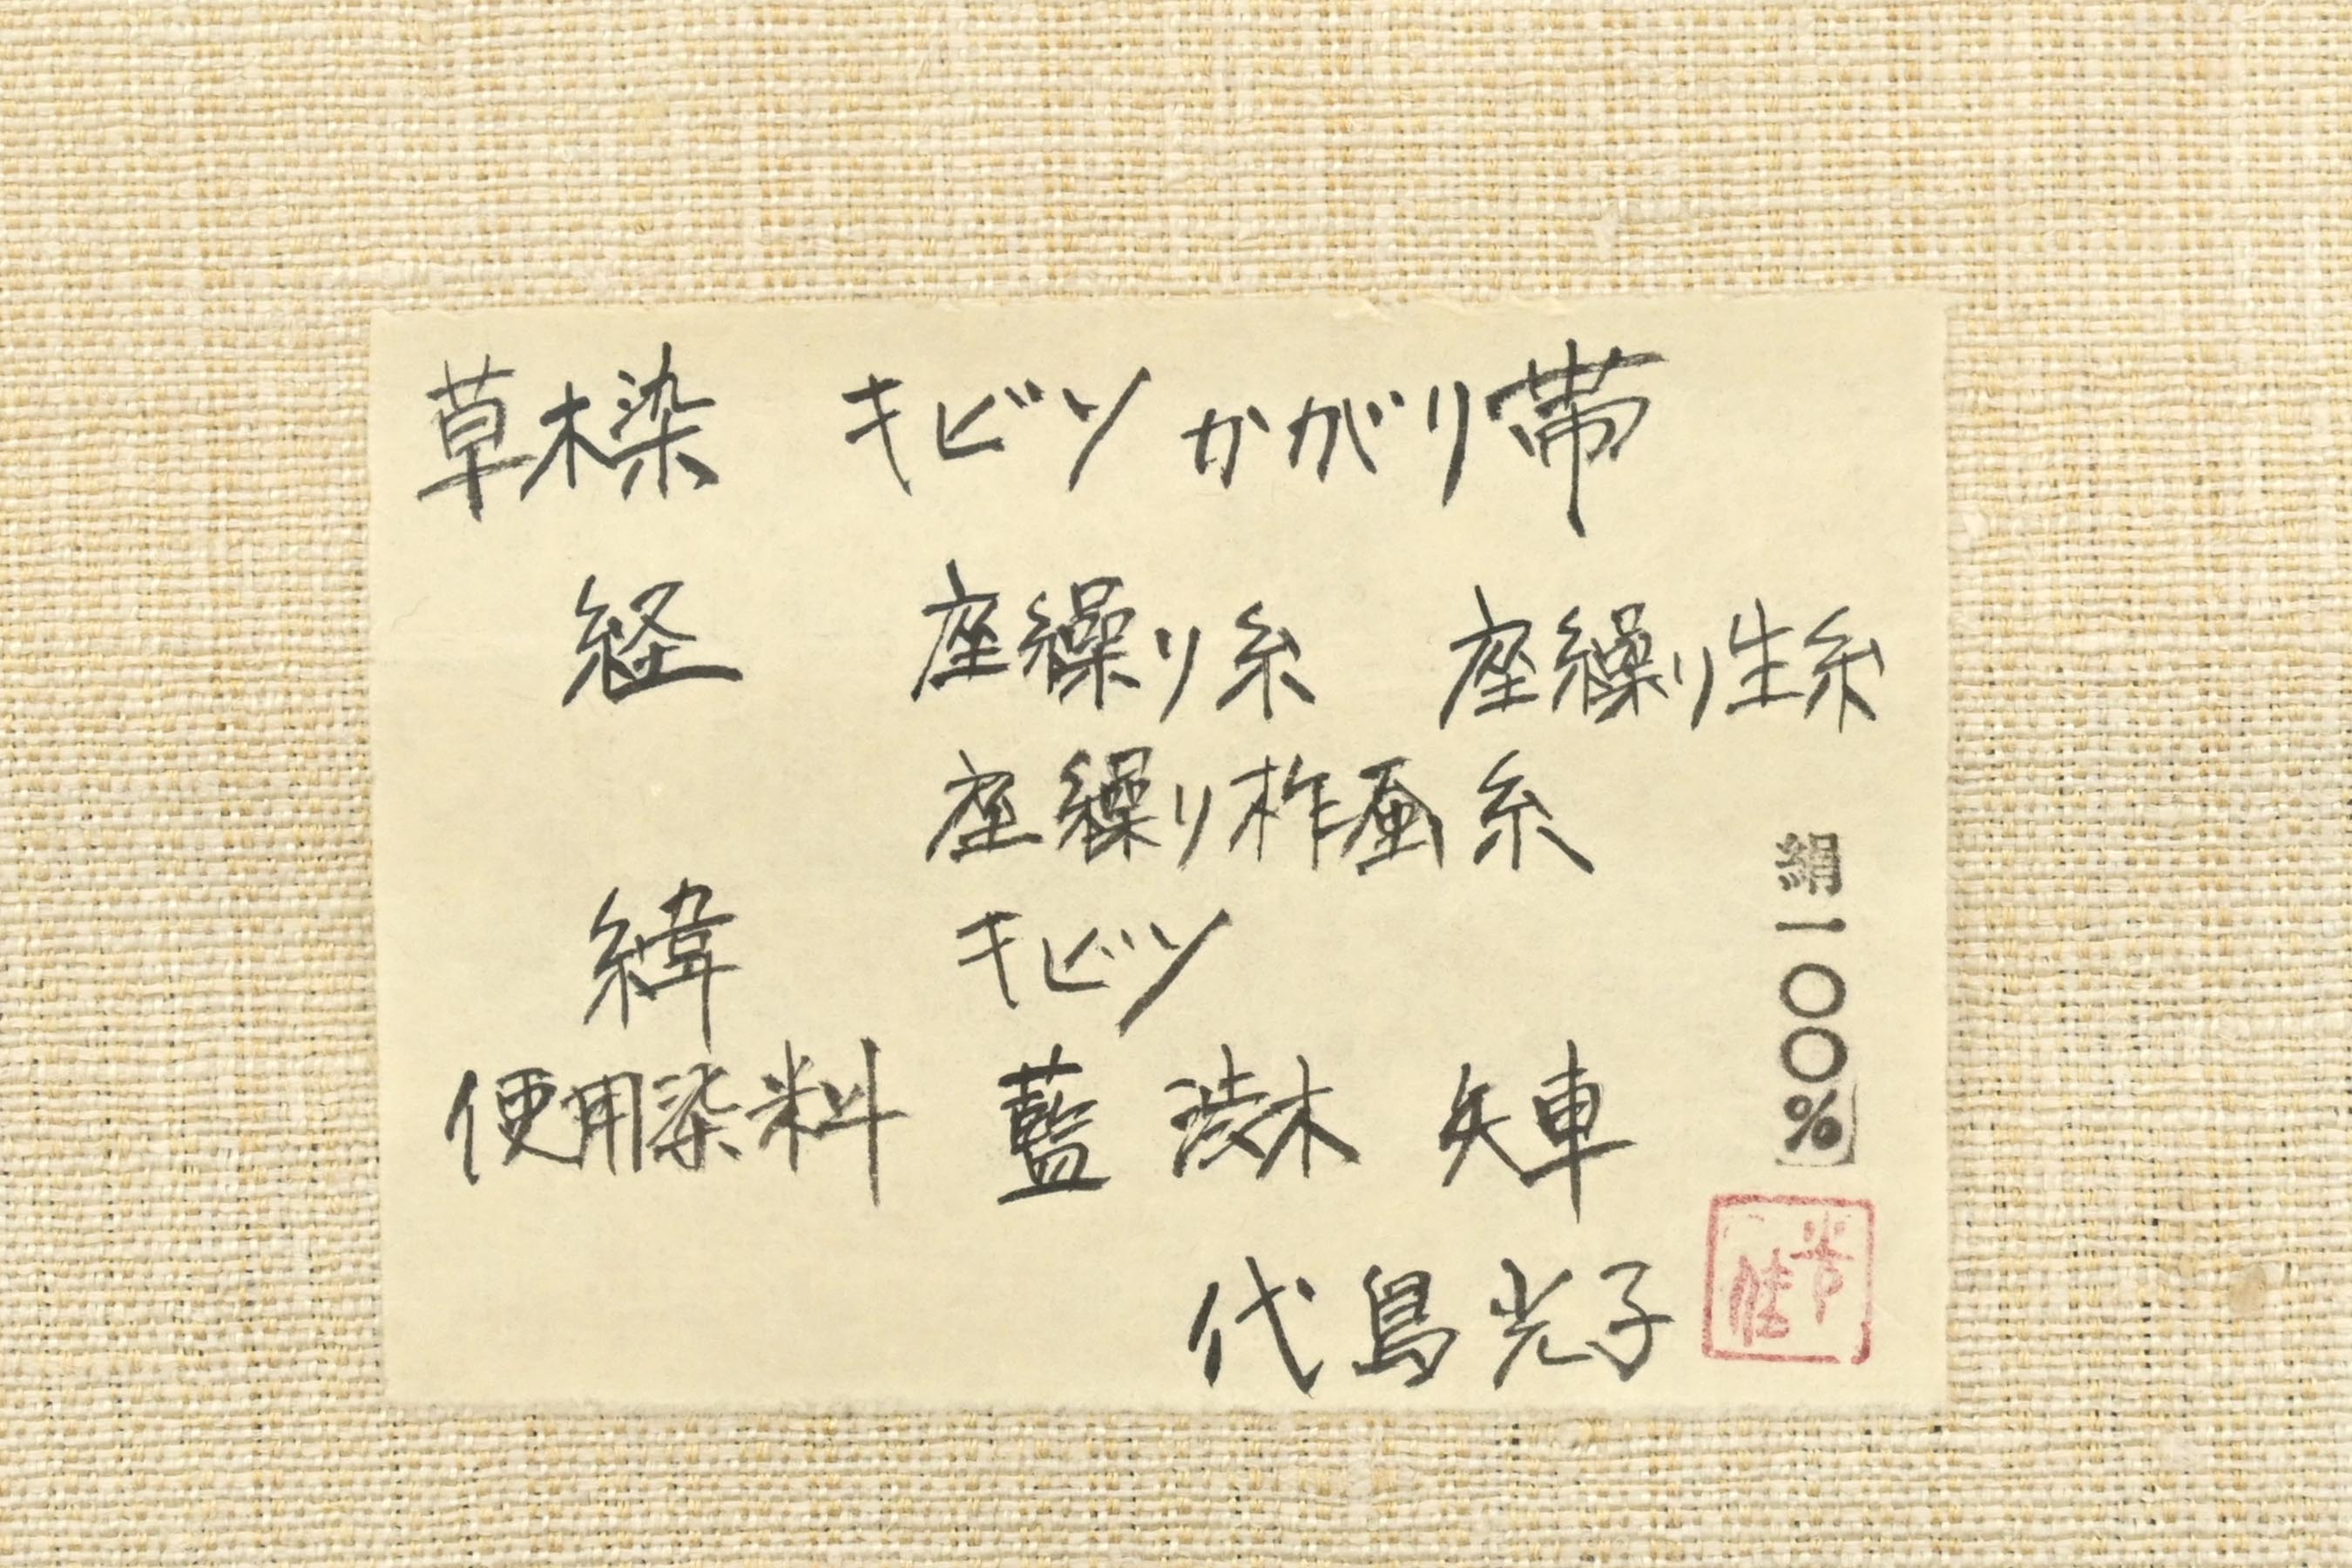 草木染　キビソかがり帯
経　座繰り糸　座繰り生糸
座繰り柞蚕糸
緯　キビソ
使用染料　藍　渋木　矢車
代島光子
絹一〇〇%